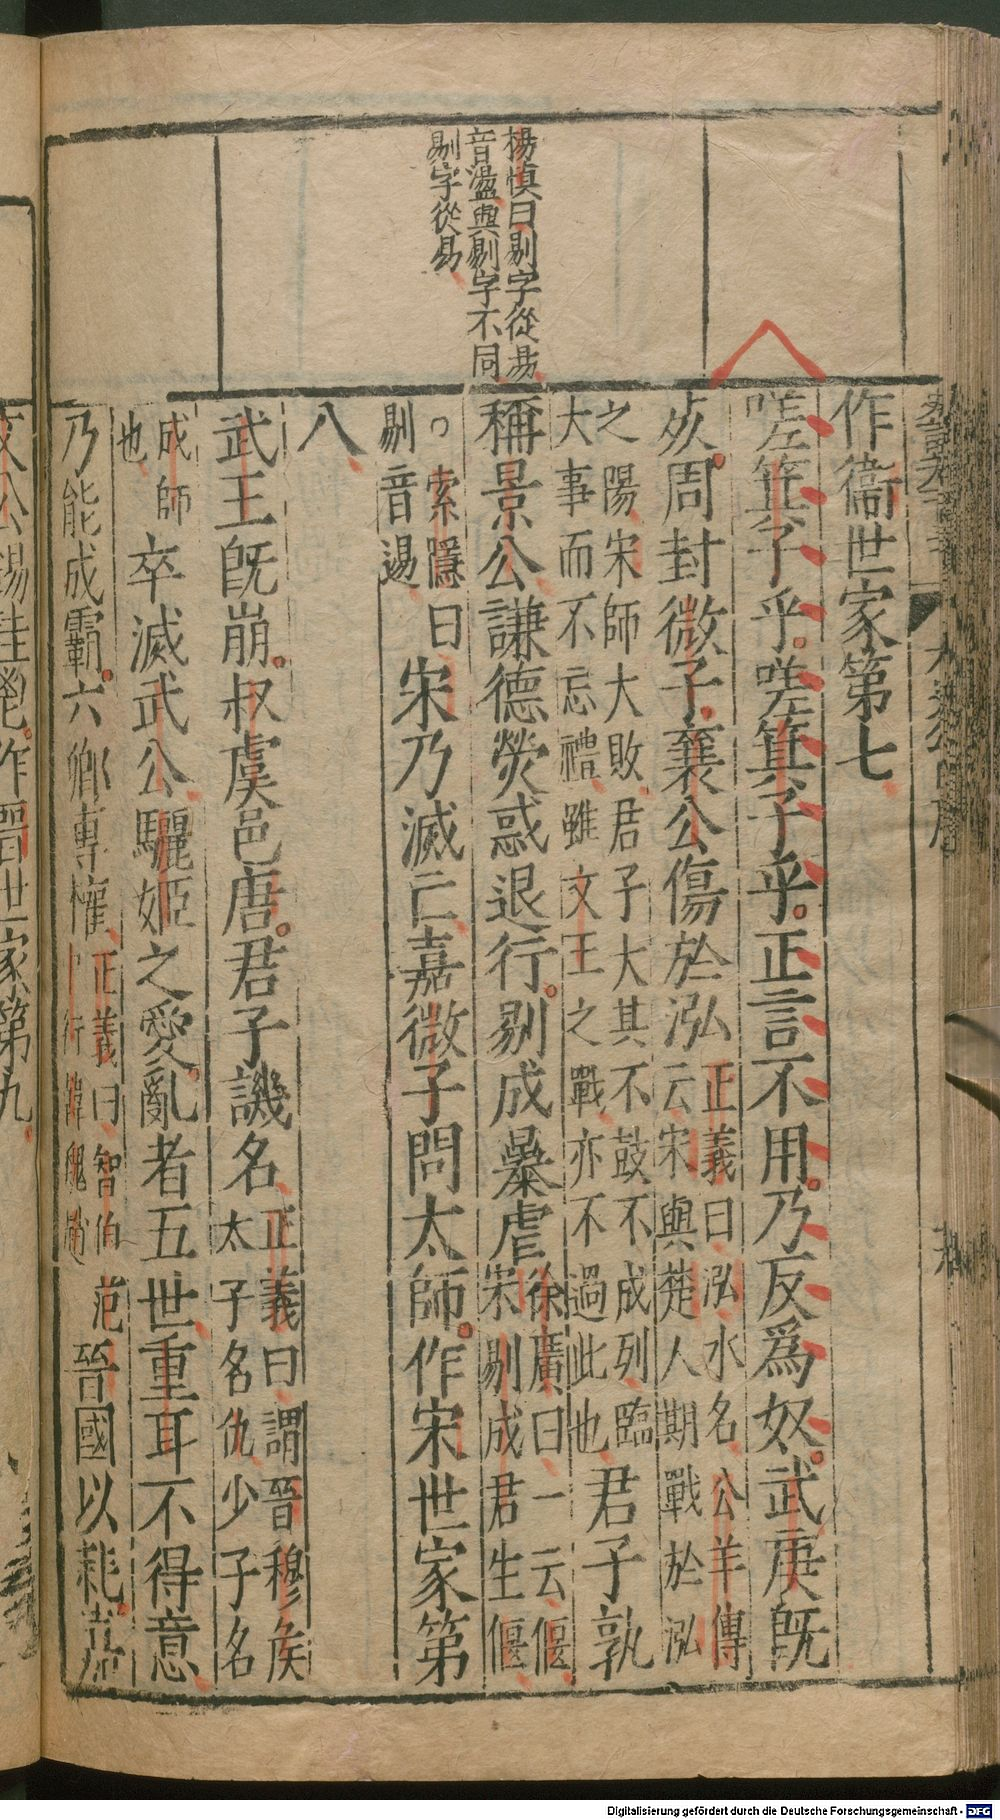 楊慎曰剔字從昜
音盪與剔字不同
剔字從易
作衞世家第七
嗟箕子乎嗟箕子乎正言不用乃反爲奴武庚既
死周封微子襄公傷於泓
正義曰泓水名公羊傳
云宋與楚人期戰於泓
之陽宋師大敗君子大其不鼓不成列臨
大事而不忘禮雖文王之戰亦不過此也
君子孰
稱景公謙德熒惑退行剔成暴虐
徐廣曰一云偃
宋剔成君生偃
索隱曰
剔音逷
宋乃滅亡嘉微子問太師作宋世家第
八
武王既崩叔虞邑唐君子譏名
正義曰謂晉穆侯
太子名仇少子名
成師
也
卒滅武公驪姬之愛亂者五世重耳不得意
乃能成霸六卿專權
正義曰智伯范
中行韓魏趙
晉國以耗嘉
文公錫珪鬯作晉世家第九
Digitalisierung gefördert durch die Deutsche Forschungsgemeinschaft - DFG